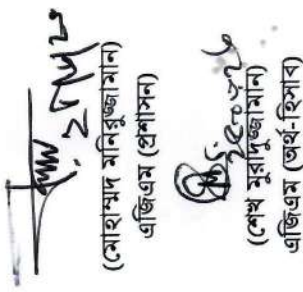 (মোহাম্মদ মনিরুজ্জামান)
এজিএম (প্রশাসন)
(শেখ মুরাদুজ্জামান)
এজিএম (অর্থ-হিসাব)